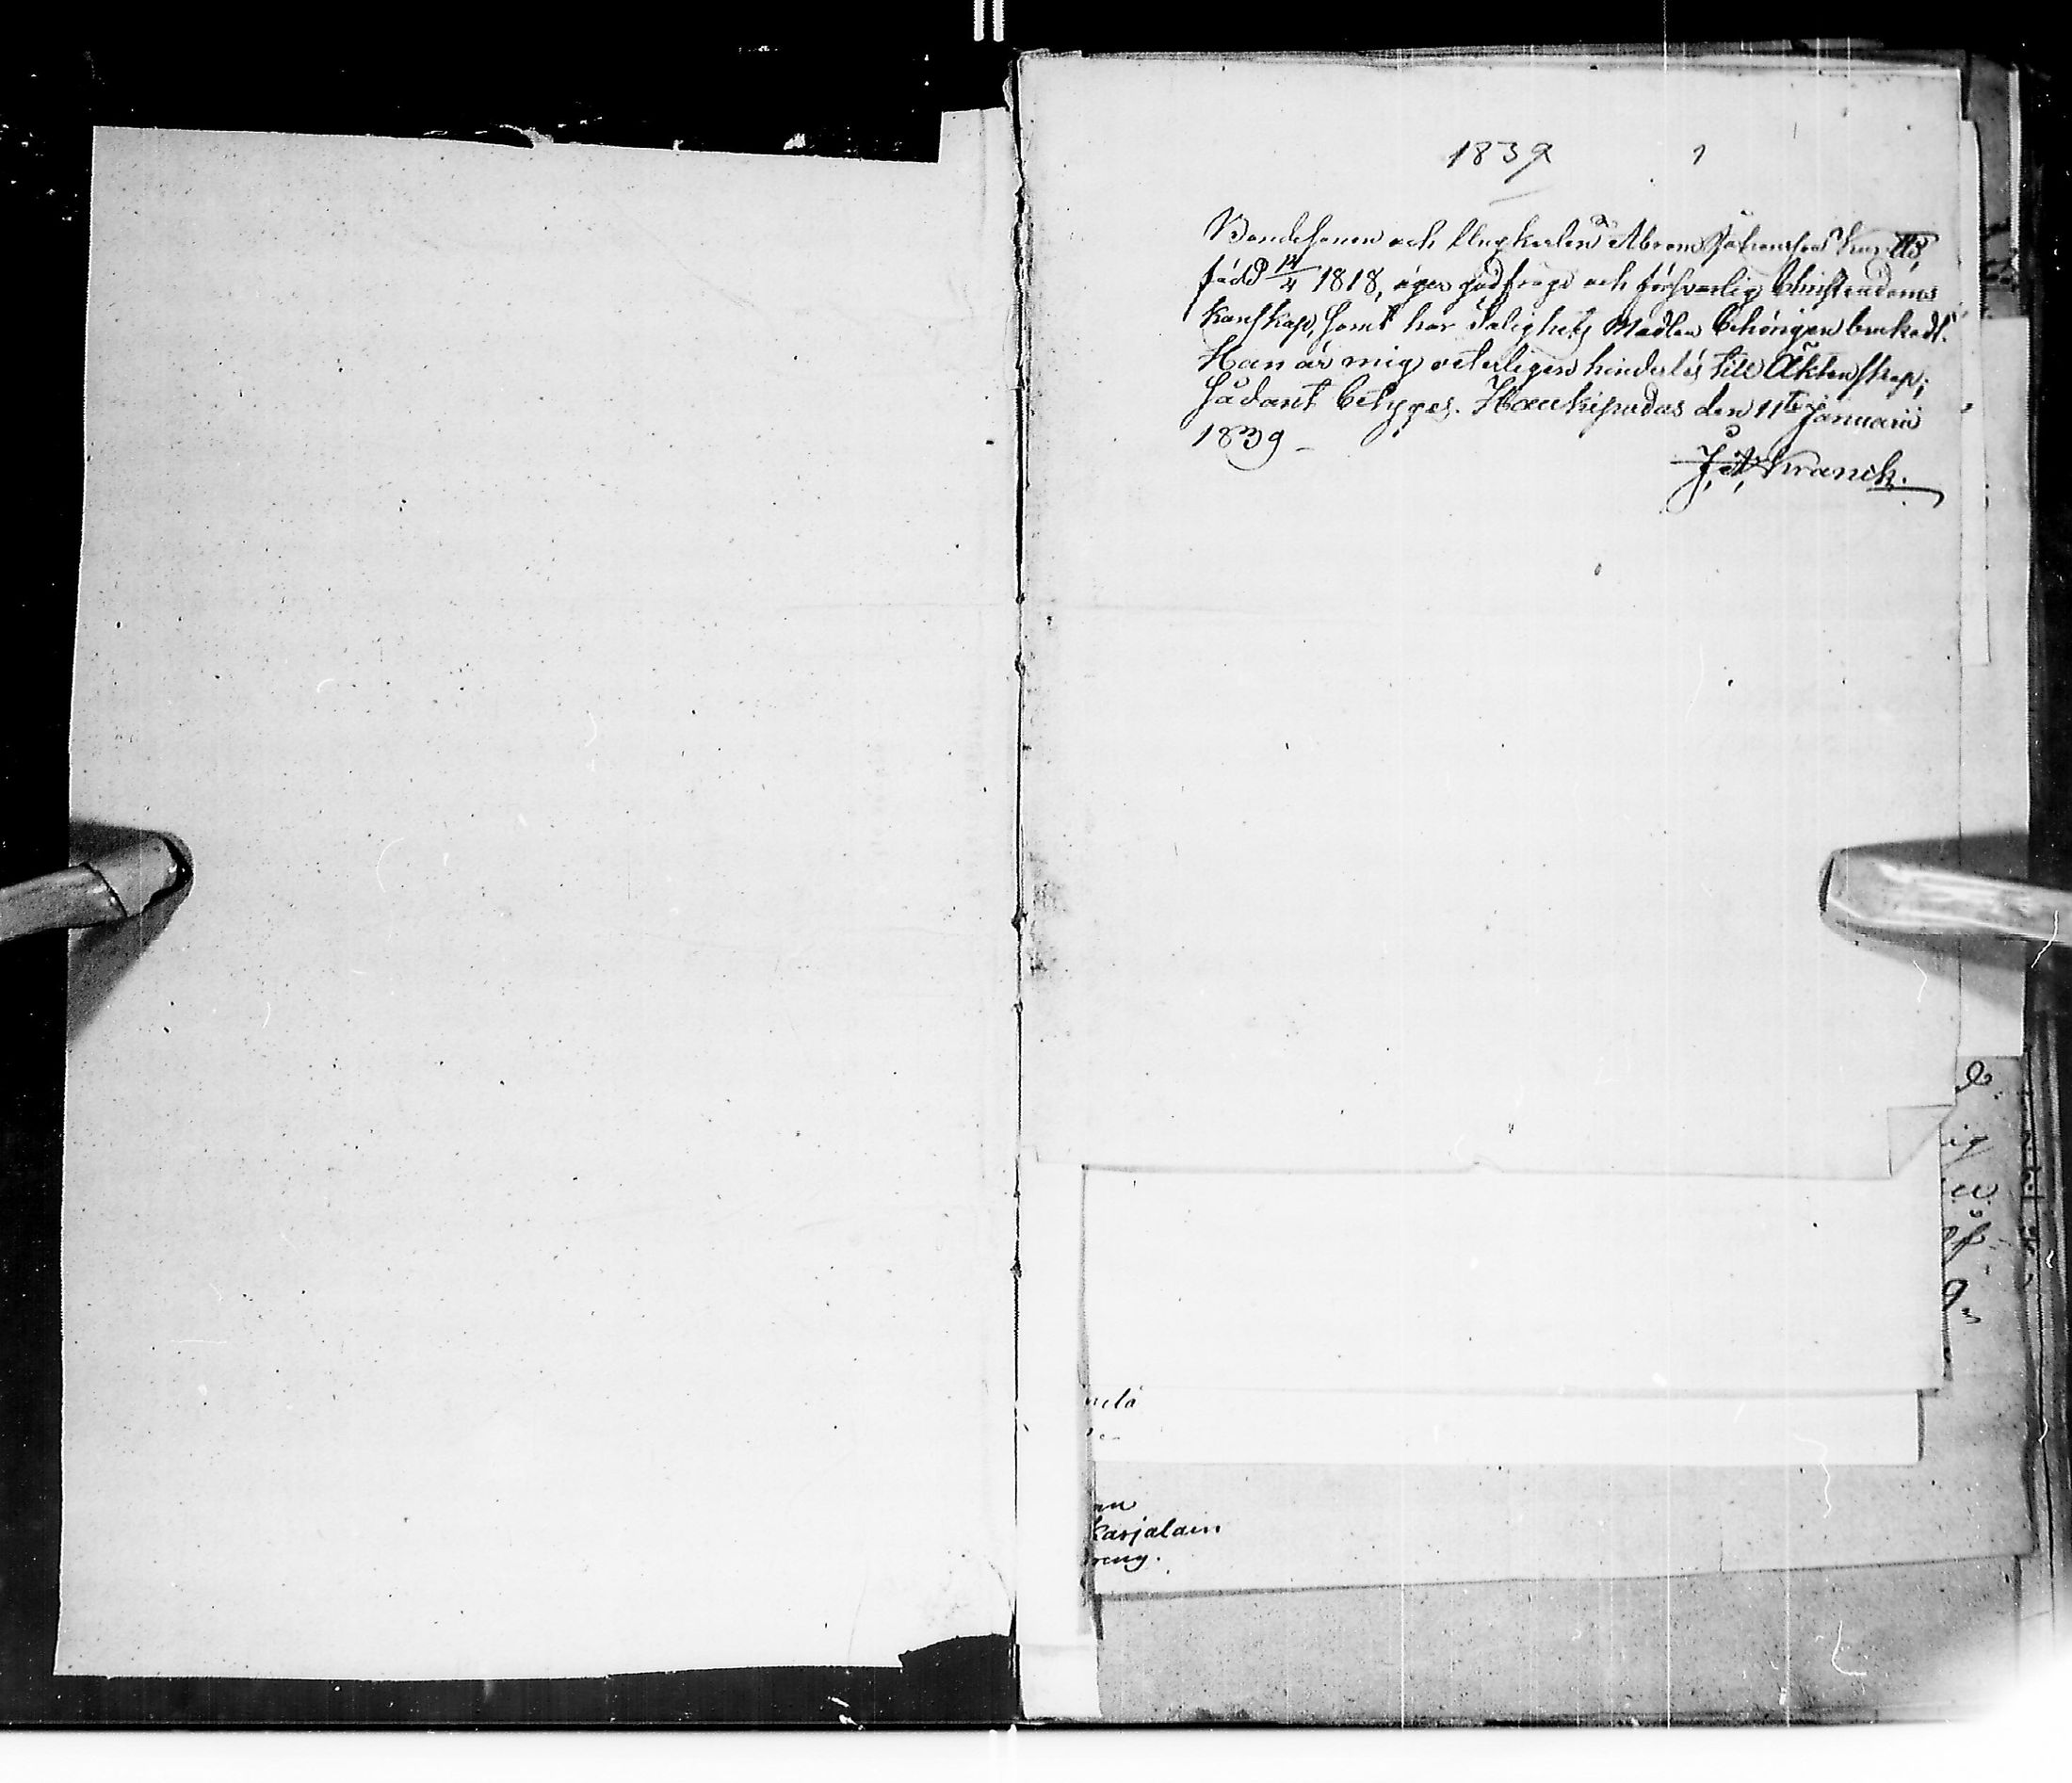 1839 1
Bondesonen och Ungkarlen Abram Johansson
född 14/4 1818, äger god frägd och försvarlig Christendoms
kunskap, samt har Salighets Medlen behörigen brukadt.
Han är mig veterligen hinderlös till Äktenskap;
Sådant betyges. Haukipudas den 11te Januarii
1839 -
J. A. Kranck.
karjalain